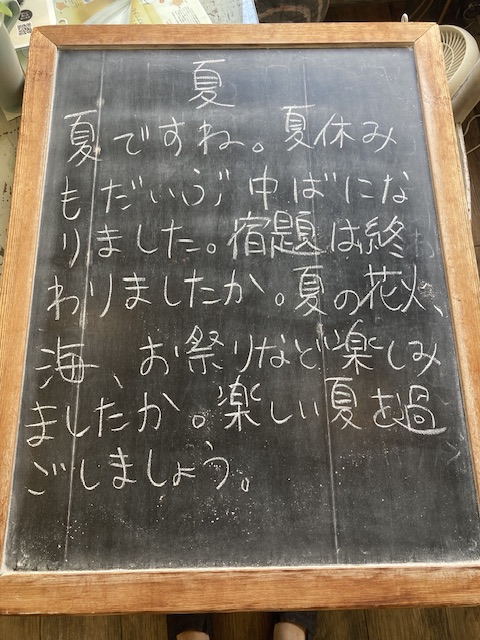 夏
夏ですね。夏休み
もだいぶ中ばにな
りました。宿題は終
わりましたか。夏の花火、
海、お祭りなど楽しみ
ましたか。楽しい夏を過
ごしましょう。